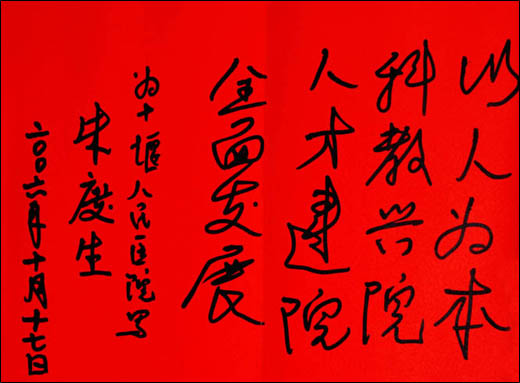 以人为本
科教兴院
人才建院
全面发展
为十堰人民医院写
朱慶生
二〇〇六年十月十七日